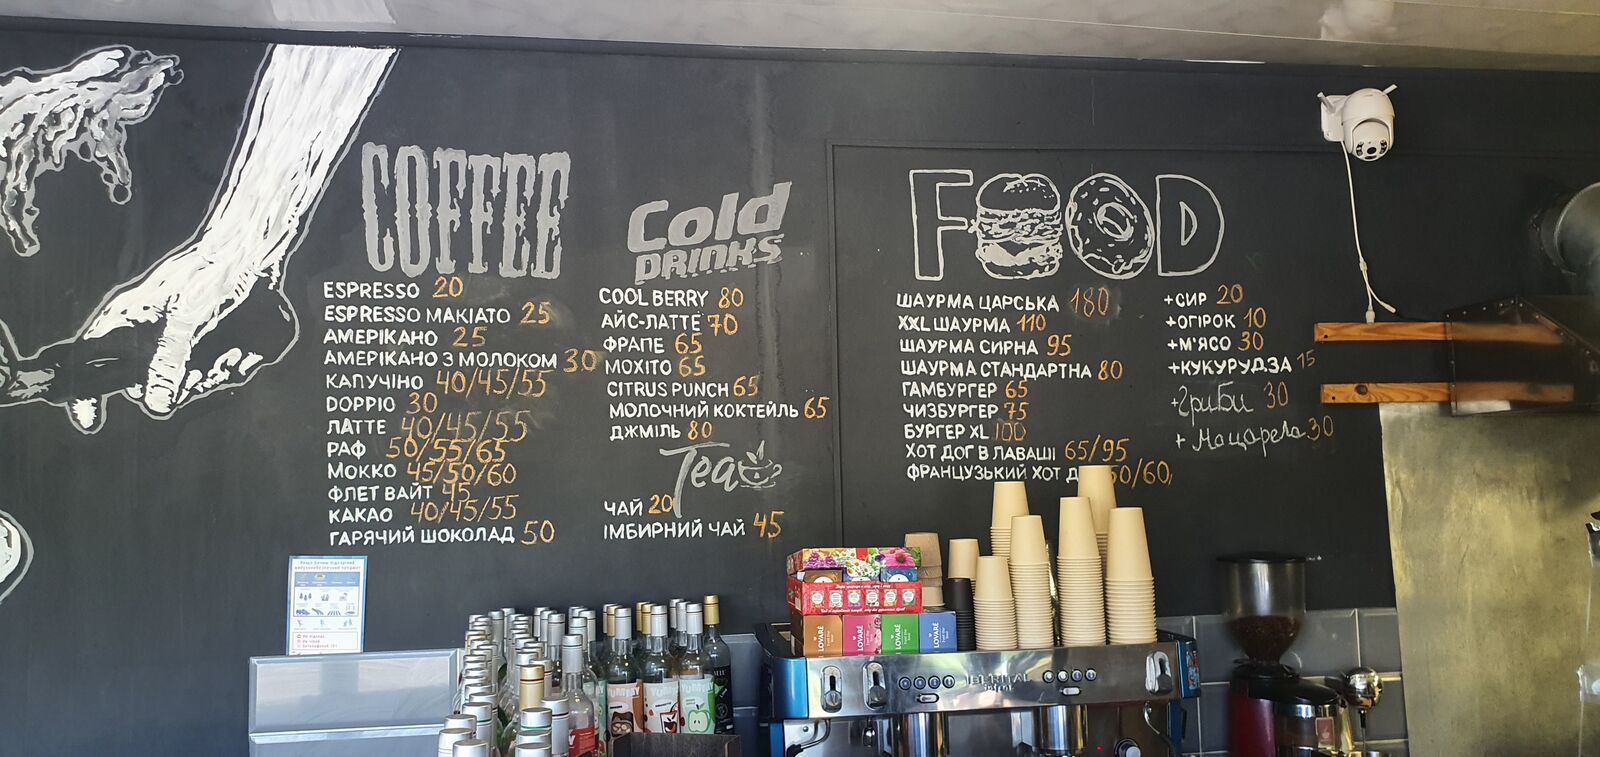 COFFEE
ESPRESSO 20
ESPRESSO МАКІАТО 25
АМЕРІКАНО 25
АМЕРІКАНО З МОЛОКОМ 30
КАПУЧІНО 40/45/55
DOPPIO 30
ЛАТТЕ 40/45/55
РАФ 50/55/65
МОККО 45/50/60
ФЛЕТ ВАЙТ 45
КАКАО 40/45/55
ГАРЯЧИЙ ШОКОЛАД 50
Cold
DRINKS
COOL BERRY 80
АЙС-ЛАТТЕ 70
ФРАПЕ 65
МОХІТО 65
CITRUS PUNCH 65
МОЛОЧНИЙ КОКТЕЙЛЬ 65
ДЖМІЛЬ 80
Tea
ЧАЙ 20
ІМБИРНИЙ ЧАЙ 45
FOOD
ШАУРМА ЦАРСЬКА 180
XXL ШАУРМА 110
ШАУРМА СИРНА 95
ШАУРМА СТАНДАРТНА 80
ГАМБУРГЕР 65
ЧИЗБУРГЕР 75
БУРГЕР XL 100
ХОТ ДОГ В ЛАВАШІ 65/95
ФРАНЦУЗЬКИЙ ХОТ Д 50/60
+СИР 20
+ОГІРОК 10
+М'ЯСО 30
+КУКУРУДЗА 15
+Гриби 30
+ Мацарела 30
LOVARÉ
LOVARÉ
LOVARÉ
LOVARÉ
IBERITAL
YUMMY
YUMMY
YUMMY